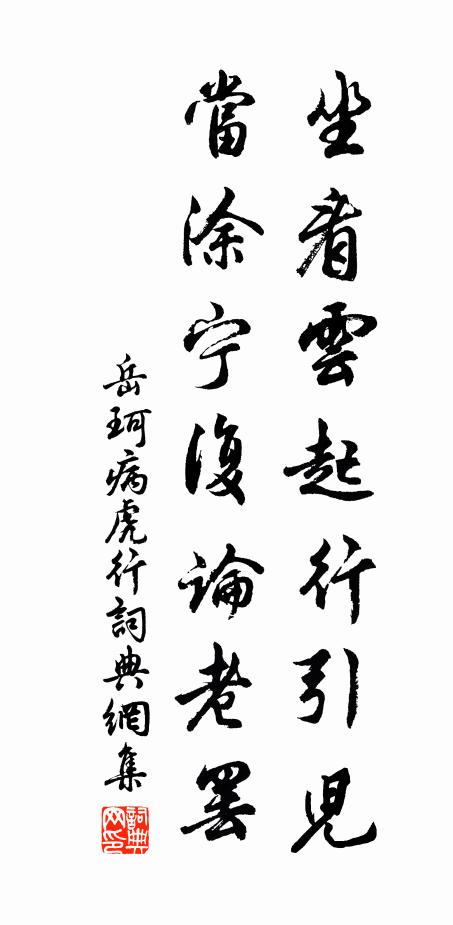 坐看雲起行引児
當涂宁復論老罢
岳珂病虎行詞典網集
詞典網印